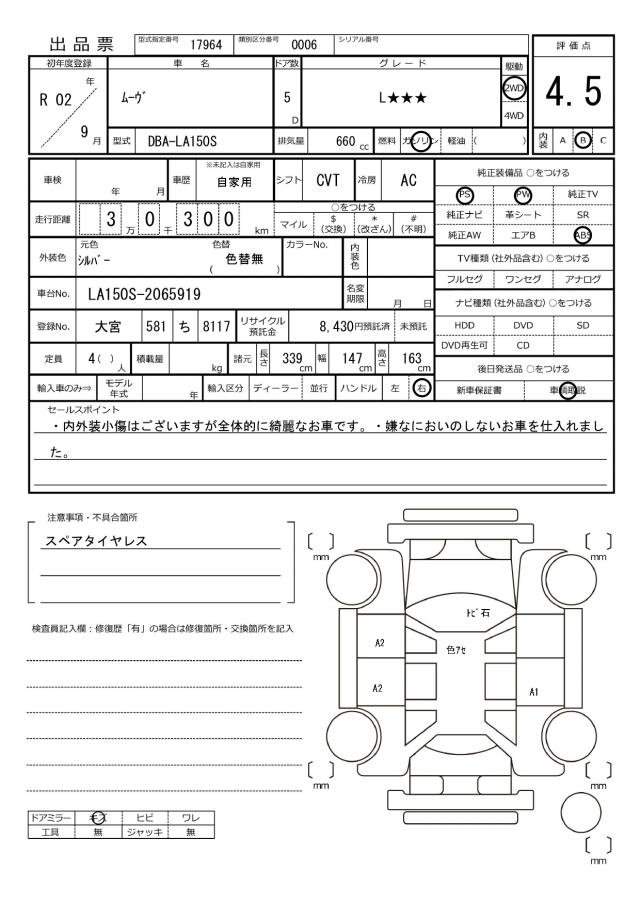 出品票
型式指定番号 17964 類別区分番号 0006 シリアル番号
評価点
4.5
内装 A B C
初年度登録 車名 ドア数 グレード 駆動
R 02 年 9 月
ﾑｰｳﾞ 5 D L★★★ 2WD 4WD
型式 DBA-LA150S 排気量 660 cc 燃料 ガソリン 軽油 ( )
車検 年 月 車歴 ※未記入は自家用 自家用 シフト CVT 冷房 AC
走行距離 3 万 0 千 3 0 0 km
○をつける
マイル $ (交換) * (改ざん) # (不明)
外装色 元色 ｼﾙﾊﾞｰ 色替 ( 色替無 ) カラーNo. 内装色
車台No. LA150S-2065919 名変期限 月 日
登録No. 大宮 581 ち 8117 リサイクル預託金 8,430円預託済 未預託
定員 4( ) 人 積載量 kg 諸元 長さ 339 cm 幅 147 cm 高さ 163 cm
輸入車のみ⇒ モデル年式 年 輸入区分 ディーラー 並行 ハンドル 左 右
純正装備品 ○をつける
PS PW 純正TV
純正ナビ 革シート SR
純正AW エアB ABS
TV種類 (社外品含む) ○をつける
フルセグ ワンセグ アナログ
ナビ種類 (社外品含む) ○をつける
HDD DVD SD
DVD再生可 CD
後日発送品 ○をつける
新車保証書 車輌取説
セールスポイント
・内外装小傷はございますが全体的に綺麗なお車です。・嫌なにおいのしないお車を仕入れまし
た。
注意事項・不具合箇所
スペアタイヤレス
検査員記入欄：修復歴「有」の場合は修復箇所・交換箇所を記入
ドアミラー キズ ヒビ ワレ
工具 無 ジャッキ 無
〔 〕 mm
〔 〕 mm
ﾄﾋﾞ石
A2
色ｱｾ
A2
A1
〔 〕 mm
〔 〕 mm
〔 〕 mm